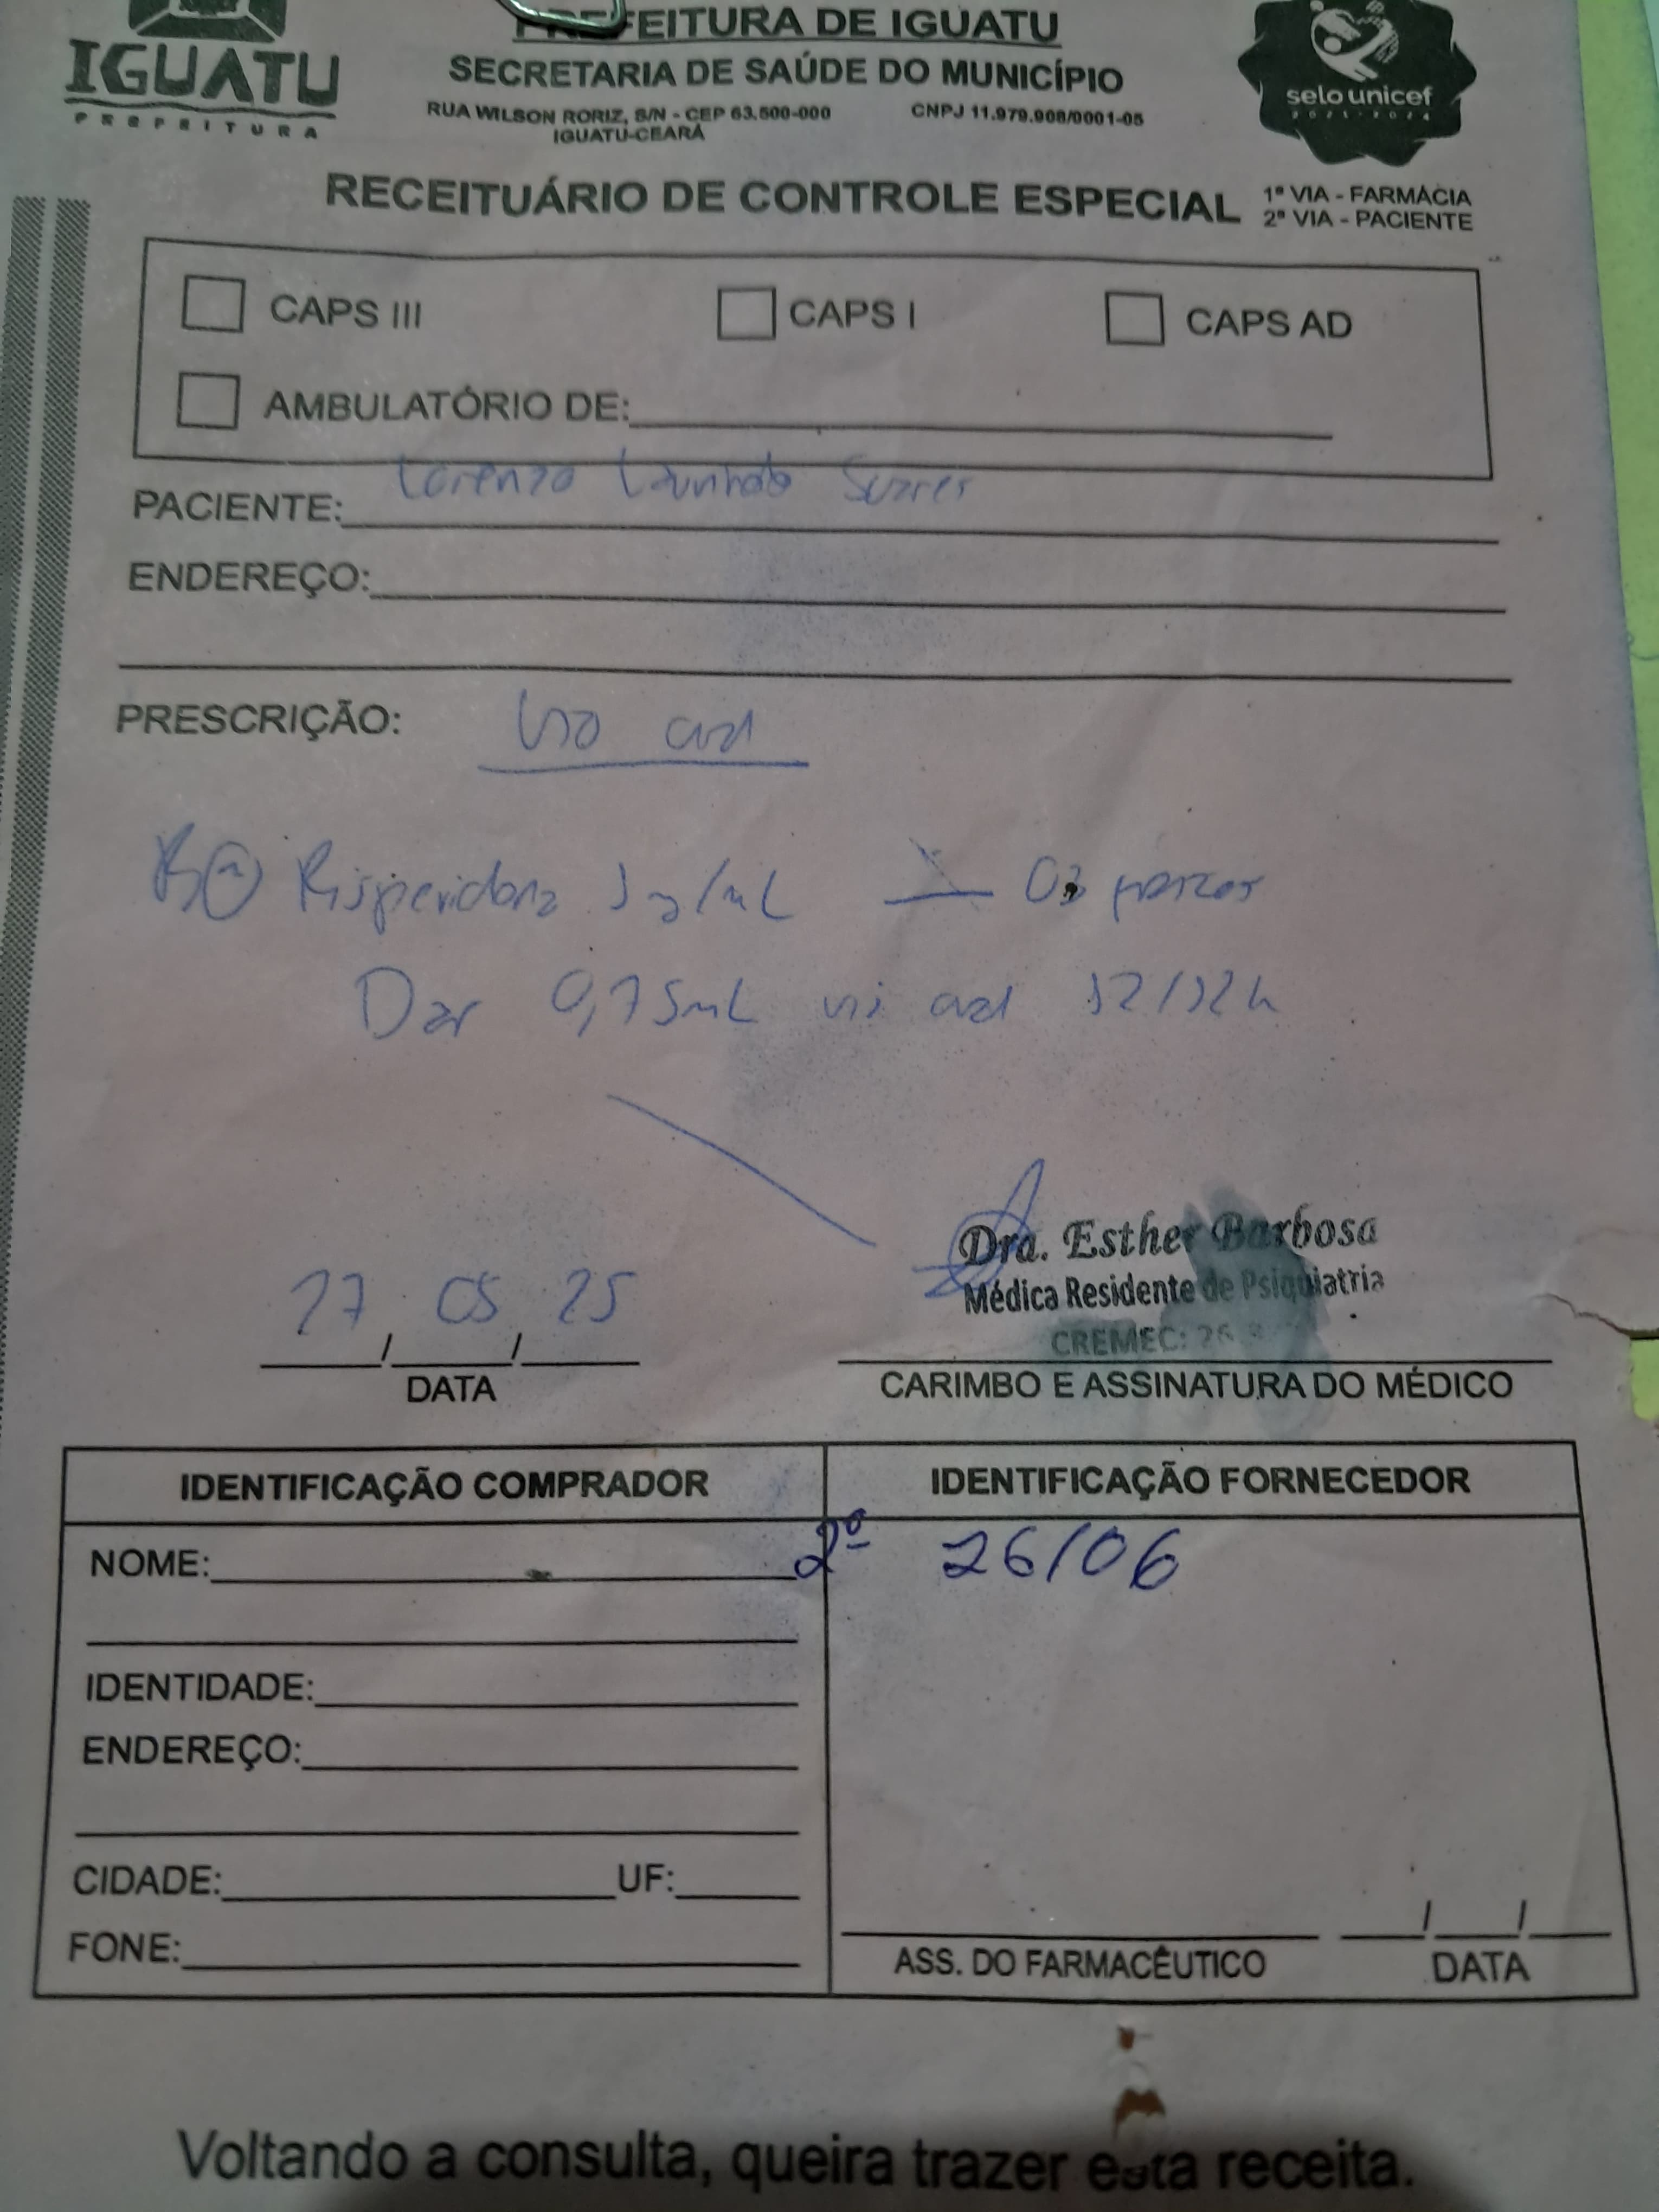 PREFEITURA DE IGUATU
IGUATU
PREFEITURA
SECRETARIA DE SAÚDE DO MUNICÍPIO
RUA WILSON RORIZ, S/N - CEP 63.500-000 CNPJ 11.979.908/0001-05
IGUATU-CEARÁ
selo unicef
2021-2024
RECEITUÁRIO DE CONTROLE ESPECIAL
1ª VIA - FARMÁCIA
2ª VIA - PACIENTE
CAPS III CAPS I CAPS AD
AMBULATÓRIO DE:
PACIENTE: Lorenzo Soares
ENDEREÇO:
PRESCRIÇÃO: Uso oral
Risperidona 1mg/mL 03 frascos
Dar 0,75mL via oral 12/12h
27 / 05 / 25
DATA
Dra. Esther Barbosa
Médica Residente de Psiquiatria
CREMEC:
CARIMBO E ASSINATURA DO MÉDICO
IDENTIFICAÇÃO COMPRADOR IDENTIFICAÇÃO FORNECEDOR
NOME: 2º 26/06
IDENTIDADE:
ENDEREÇO:
CIDADE: UF:
FONE:
ASS. DO FARMACÊUTICO / / DATA
Voltando a consulta, queira trazer esta receita.